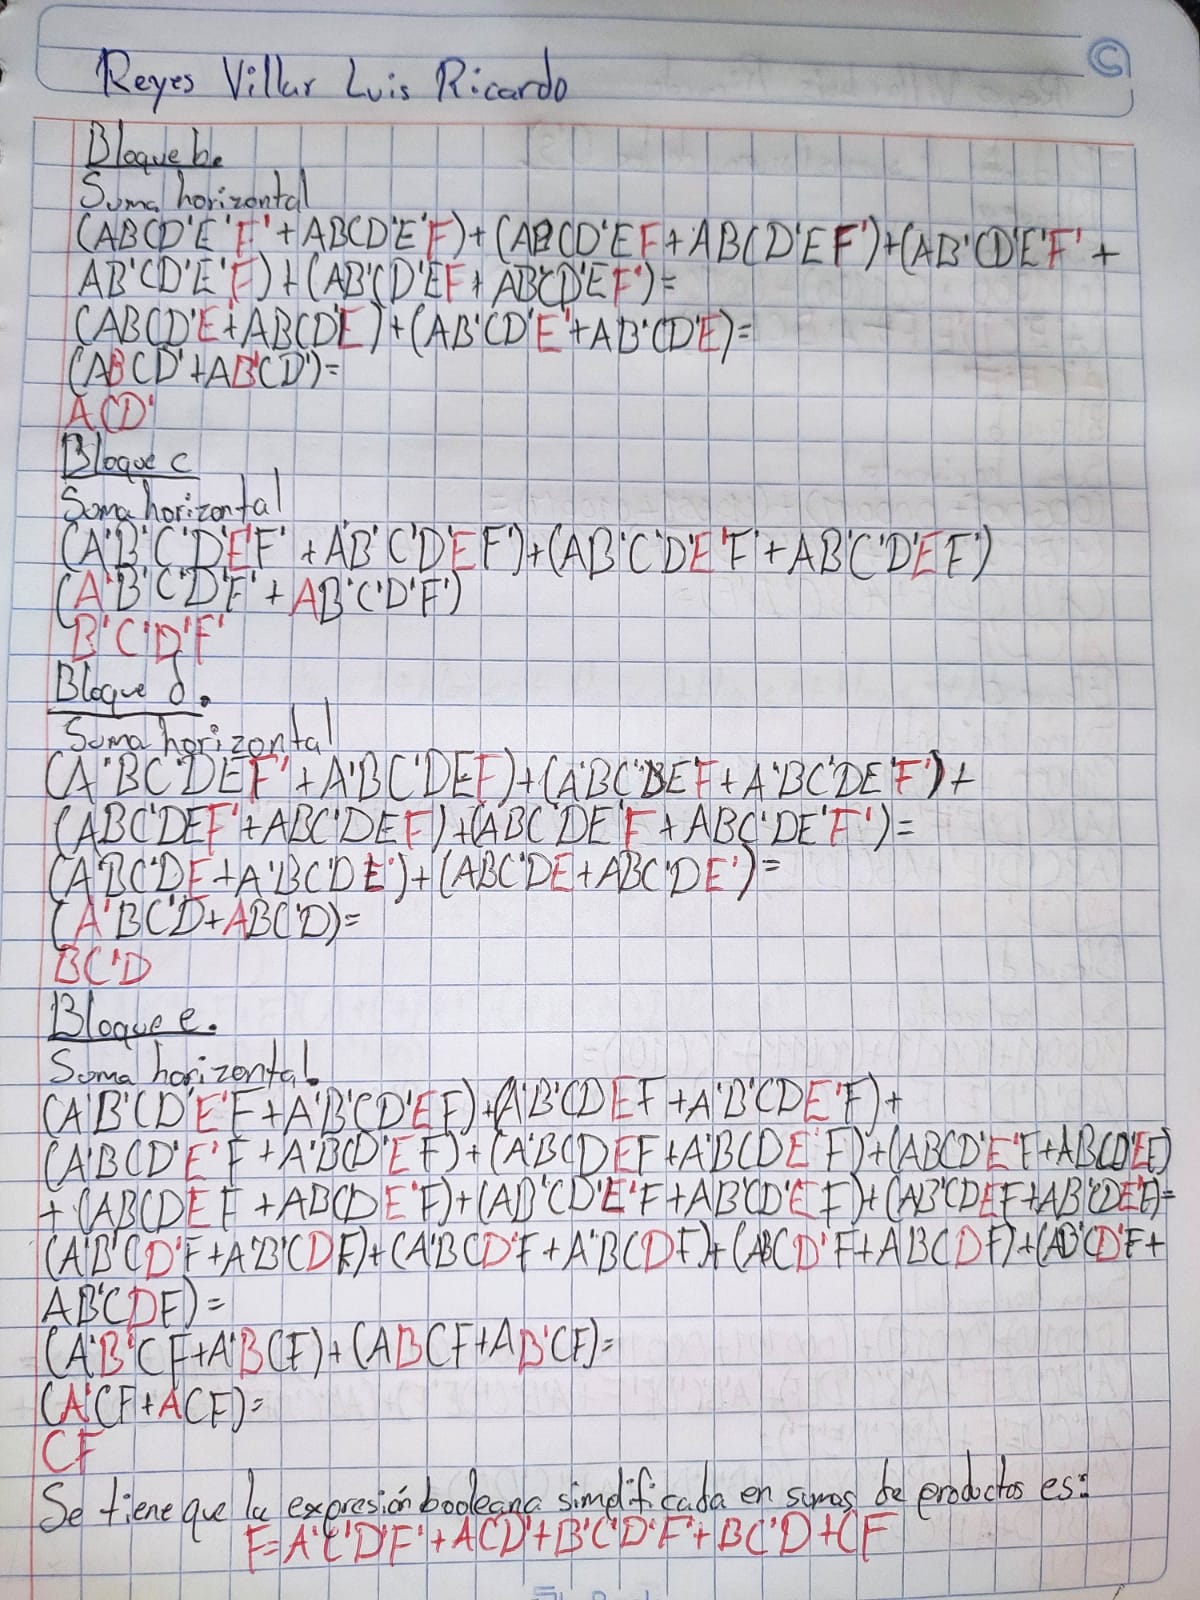 Reyes Villar Luis Ricardo
Bloque b.
Suma horizontal
(ABCD'E'F'+ABCD'E'F)+(ABCD'EF+ABCD'EF')+(AB'CD'E'F'+
AB'CD'E'F)+(AB'CD'EF+AB'CD'EF')=
(ABCD'E'+ABCD'E)+(AB'CD'E'+AB'CD'E)=
(ABCD'+AB'CD')=
ACD'
Bloque c
Suma horizontal
(A'B'C'D'E'F'+A'B'C'D'EF')+(AB'C'D'E'F'+AB'C'D'EF')
(A'B'C'D'F'+AB'C'D'F')
B'C'D'F'
Bloque d.
Suma horizontal
(A'BC'DEF'+A'BC'DEF)+(A'BC'DE'F+A'BC'DE'F')+
(ABC'DEF'+ABC'DEF)+(ABC'DE'F+ABC'DE'F')=
(A'BC'DE+A'BC'DE')+(ABC'DE+ABC'DE')=
(A'BC'D+ABC'D)=
BC'D
Bloque e.
Suma horizontal.
(A'B'CD'E'F+A'B'CD'EF)+(A'B'CDEF+A'B'CDE'F)+
(A'BCD'E'F+A'BCD'EF)+(A'BCDEF+A'BCDE'F)+(ABCD'E'F+ABCD'EF)
+(ABCDEF+ABCDE'F)+(AB'CD'E'F+AB'CD'EF)+(AB'CDEF+AB'CDE'F)=
(A'B'CD'F+A'B'CDF)+(A'BCD'F+A'BCDF)+(ABCD'F+ABCDF)+(AB'CD'F+
AB'CDF)=
(A'B'CF+A'BCF)+(ABCF+AB'CF)=
(A'CF+ACF)=
CF
Se tiene que la expresión booleana simplificada en sumas de productos es:
F=A'C'D'F'+ACD'+B'C'D'F'+BC'D+CF